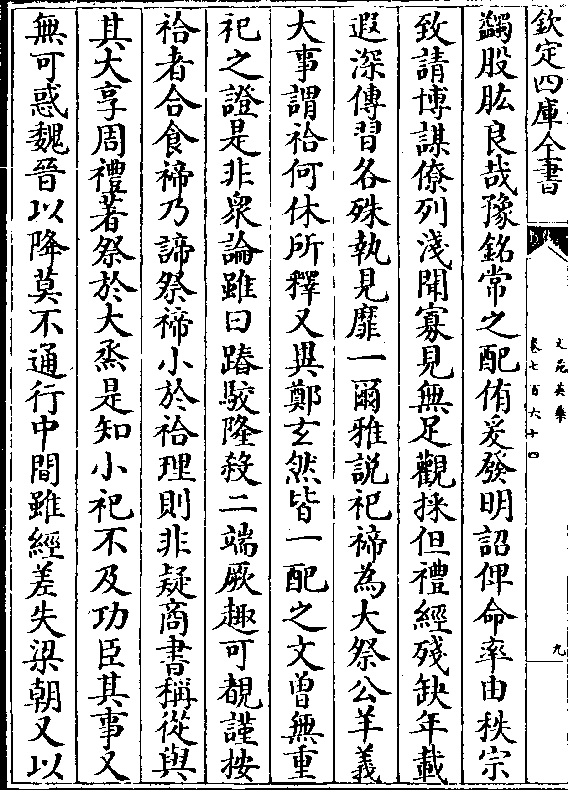 欽定四庫全書
文苑英華
卷七百六十四
九
蠲股肱良哉豫銘常之配侑爰發明詔俾命率由秩宗
致請博謀僚列淺聞寡見無足觀採但禮經殘缺年載
遐深傳習各殊執見靡一爾雅説祀禘為大祭公羊義
大事謂祫何休所釋又異鄭玄然皆一配之文曾無重
祀之證是非衆論雖曰踳駁隆殺二端厥趣可覩謹按
祫者合食禘乃諦祭禘小於祫理則非疑商書稱從與
其大享周禮著祭於大烝是知小祀不及功臣其事又
無可惑魏晉以降莫不通行中間雖經差失梁朝又以